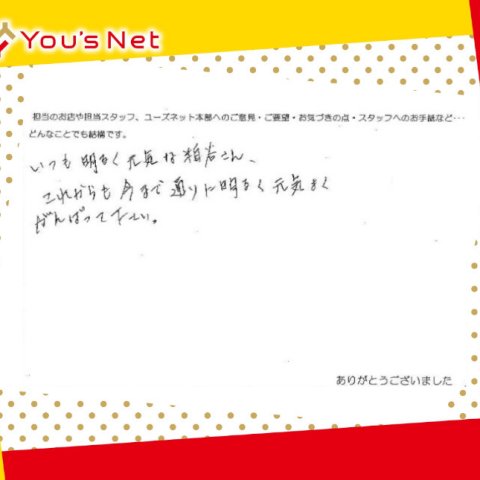 You's Net
担当のお店や担当スタッフ、ユーズネット本部へのご意見・ご要望・お気づきの点・スタッフへのお手紙など・・・
どんなことでも結構です。
いつも明るく元気な さん、
これからも今まで通りに明るく元気よく
がんばって下さい。
ありがとうございました